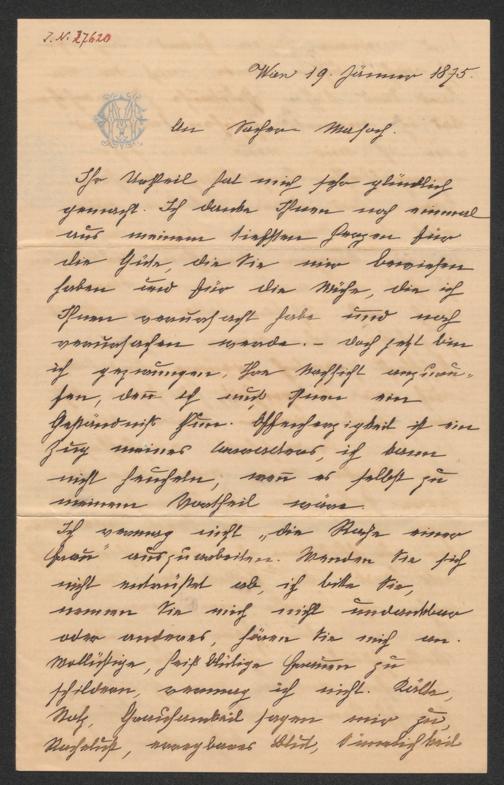 I. N. 27620
Wien 19. Jänner 1875.
An Sacher-Masoch.
Ihr Urtheil hat mich sehr glücklich
gemacht. Ich danke Ihnen noch einmal
aus meinem tiefsten Herzen für
die Güte, die Sie mir bewiesen
haben und für die Mühe, die ich
Ihnen verursacht habe und noch
verursachen werde. – Doch jetzt bin
ich gezwungen, Ihre Nachsicht anzuru-
fen, denn ich muß Ihnen ein
Geständniß thun. Offenherzigkeit ist ein
Zug meines Characters, ich kann
nicht heucheln, wenn es selbst zu
meinem Vortheil wäre.
Ich vermag nicht „die Rache einer
Frau" auszuarbeiten. Wenden Sie sich
nicht entrüstet ab, ich bitte Sie,
nennen Sie mich nicht undankbar
oder anderes, hören Sie mich an.
Wollüstige, heißblütige Frauen zu
schildern, vermag ich nicht. Kälte,
Stolz, Grausamkeit sagen mir zu,
Rachelust, erregbares Blut, Sinnlichkeit